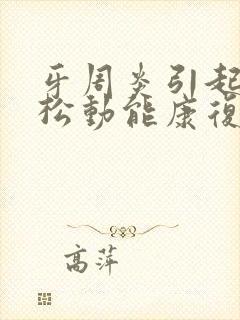 牙周炎引起
松動能康復
高萍